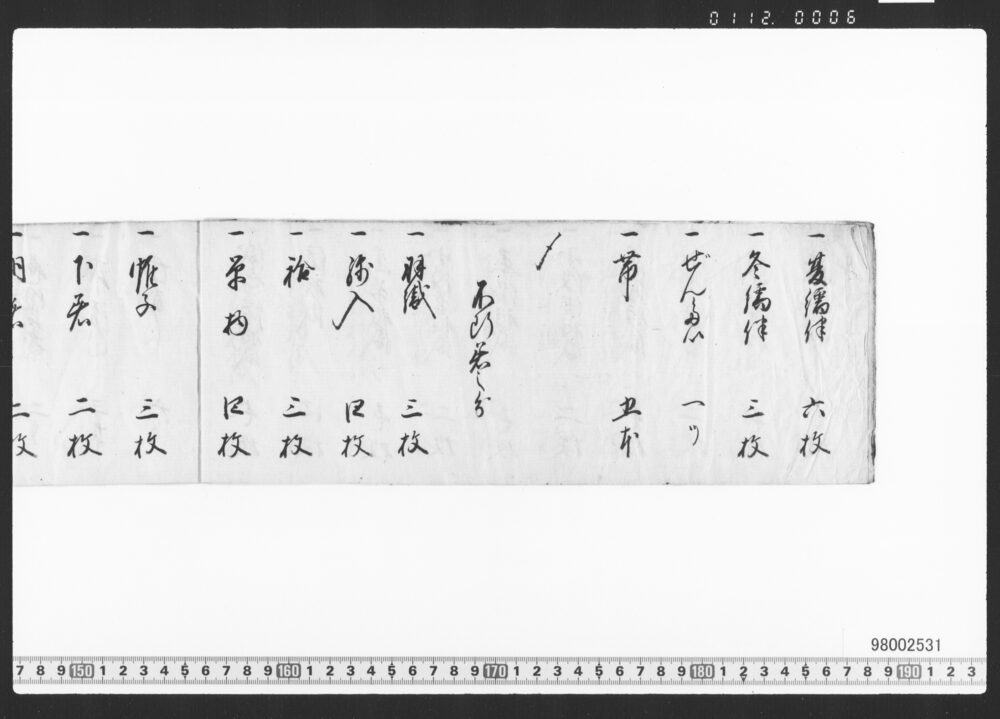 0112. 0006
一 夏襦伴 六枚
一 冬襦伴 三枚
一 ぜんまい 一ツ
一 帯 五本
〆
不断着之分
一 羽織 三枚
一 綿入 四枚
一 袷 三枚
一 単物 四枚
一 帷子 三枚
一 下着 二枚
一 二枚
98002531
7 8 9 150 1 2 3 4 5 6 7 8 9 160 1 2 3 4 5 6 7 8 9 170 1 2 3 4 5 6 7 8 9 180 1 2 3 4 5 6 7 8 9 190 1 2 3